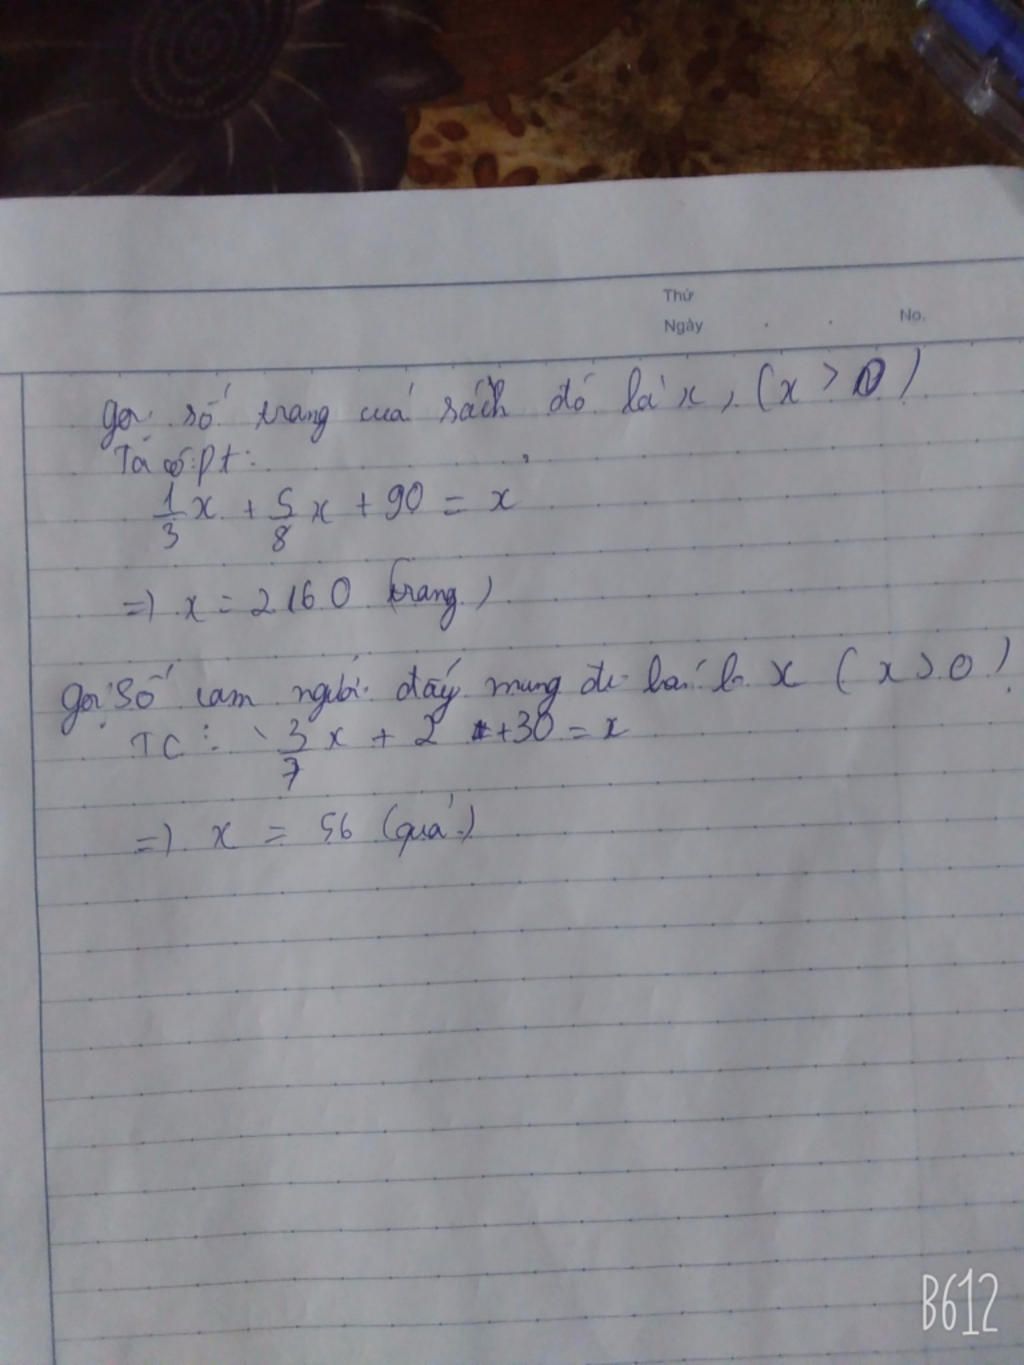 Thứ
Ngày No.
Gọi số trang cuả sách đó là x, (x > 0)
Ta có pt:
1/3 x + 5/8 x + 90 = x
=) x = 2160 (trang)
Gọi số cam người đấy mang đi bán là x (x > 0)
TC: 3/7 x + 2 + 30 = x
=) x = 56 (quả)
B612